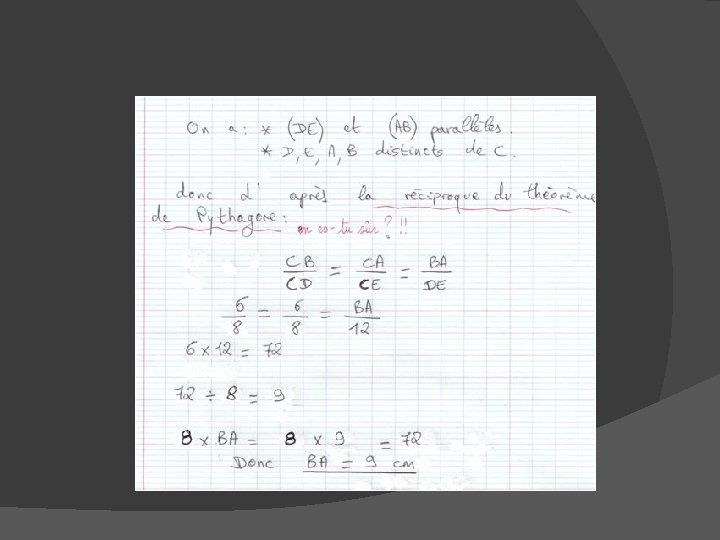 On a : * (DE) et (AB) parallèles.
* D, E, A, B distincts de C.
donc d' après la réciproque du théorème
de Pythagore : en es-tu sûr ? !!
CB/CD = CA/CE = BA/DE
6/8 = 6/8 = BA/12
6 x 12 = 72
72 ÷ 8 = 9
8 x BA = 8 x 9 = 72
Donc BA = 9 cm